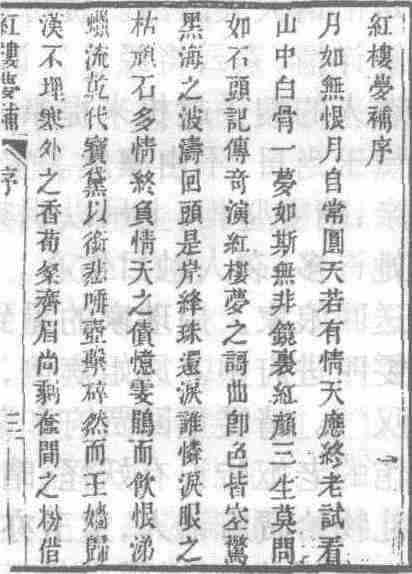 紅樓夢補序
月如無恨月自常圓天若有情天應終老試看
山中白骨一夢如斯無非鏡裏紅顏三生莫問
如石頭記傳竒演紅樓夢之謌曲卽色皆空驚
黑海之波濤回頭是岸絳珠還淚誰憐淚眼之
枯頑石多情終負情天之債憶雯鵑而飲恨涕
蠟流乾代寶黛以銜悲唾壺擊碎然而王嬙歸
漢不埋塞外之香荀粲齊眉尚剩奩間之粉借
紅樓夢補 序